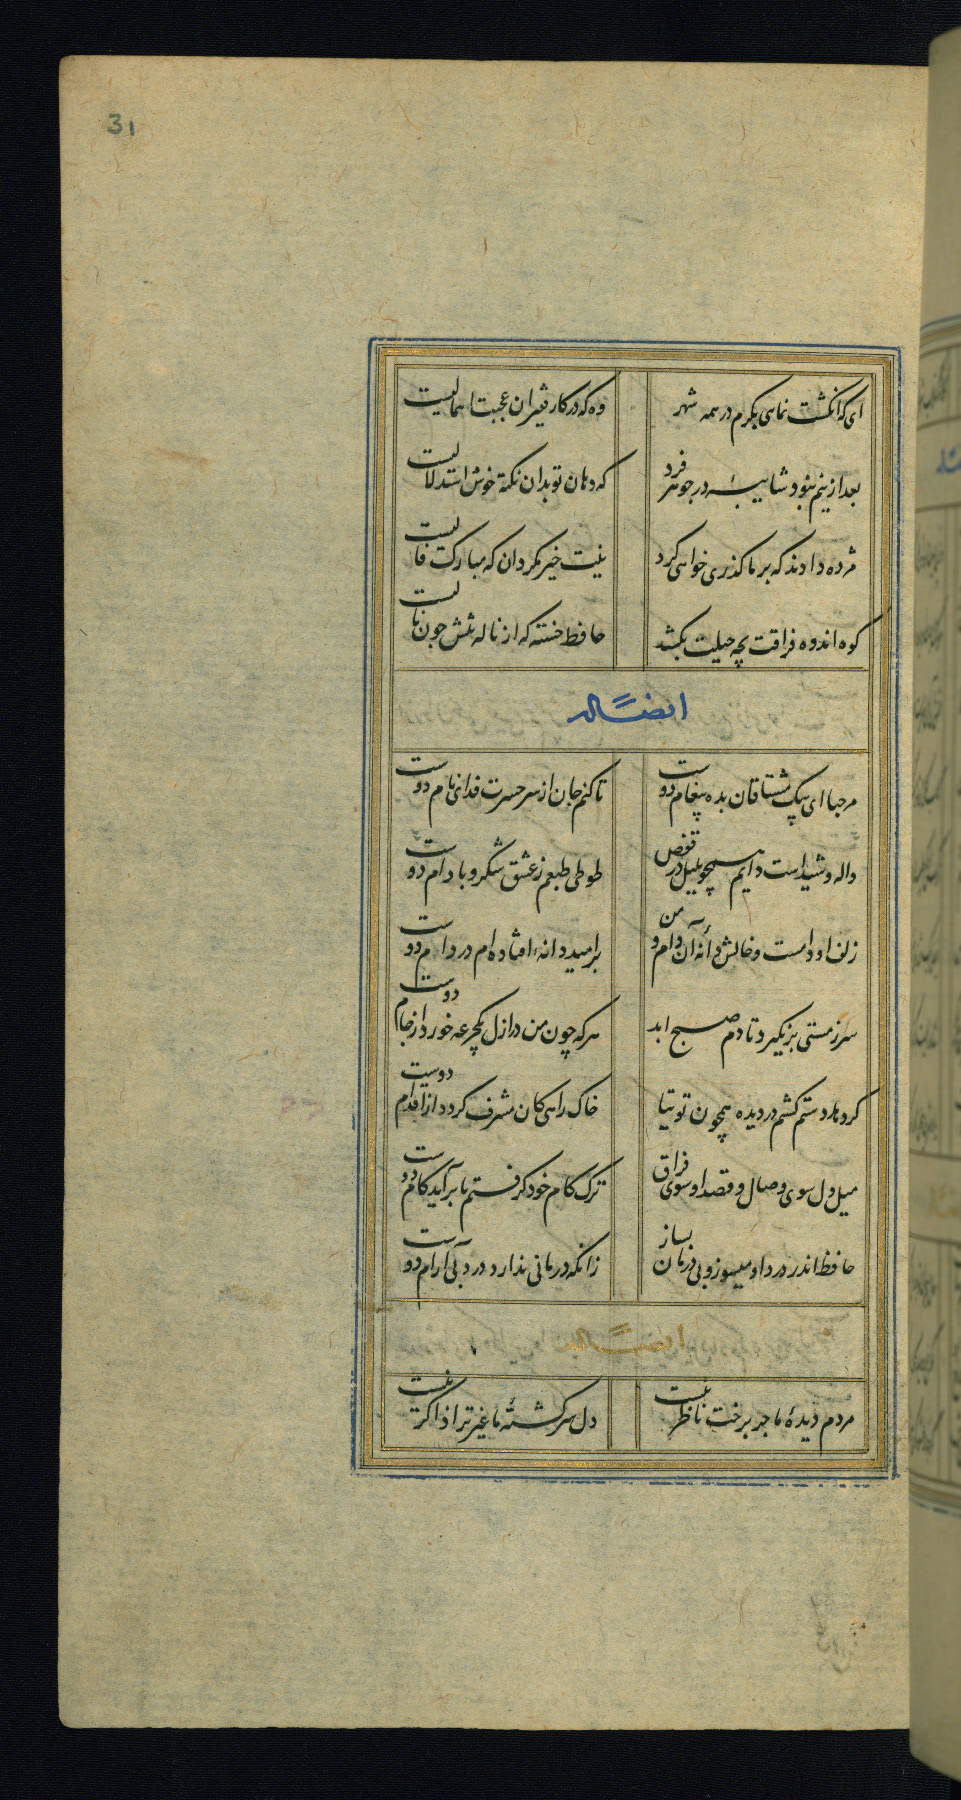 31
ای که انگشت نمایی بکرم در همه شهر
وه که در کار فقیران عجبت اهمالیست
بعد ازینم نبود شایبه در جوهر فرد
که دهان تو بدان نکته خوش استدلالیست
مژده دادند که بر ما گذری خواهی کرد
نیت خیر مگردان که مبارک فالیست
کوه اندوه فراقت بچه حیلت بکشد
حافظ خسته که از ناله تنش چون نالیست
ایضاً له
مرحبا ای پیک مشتاقان بده پیغام دوست
تا کنم جان از سر حسرت فدای نام دوست
واله و شیداست دایم همچو بلبل در قفص
طوطی طبعم ز عشق شکر و بادام دوست
زلف او دامست و خالش دانهٔ آن دام و من
بر امید دانهٔ افتاده‌ام در دام دوست
سر ز مستی بر نگیرد تا دم صبح ابد
هر که چون من در ازل یکجرعه خورد از جام دوست
گر دهد دستم کشم در دیده همچون توتیا
خاک راهی کان مشرف گردد از اقدام دوست
میل دل سوی وصال و قصد او سوی فراق
ترک کام خود گرفتم تا برآید کام دوست
حافظ اندر درد او میسوز و بی درمان بساز
زانکه درمانی ندارد درد بی ارام دوست
ایضاً له
مردم دیدهٔ ما جز برخت ناظر نیست
دل سرگشتهٔ ما غیر ترا ذاکر نیست